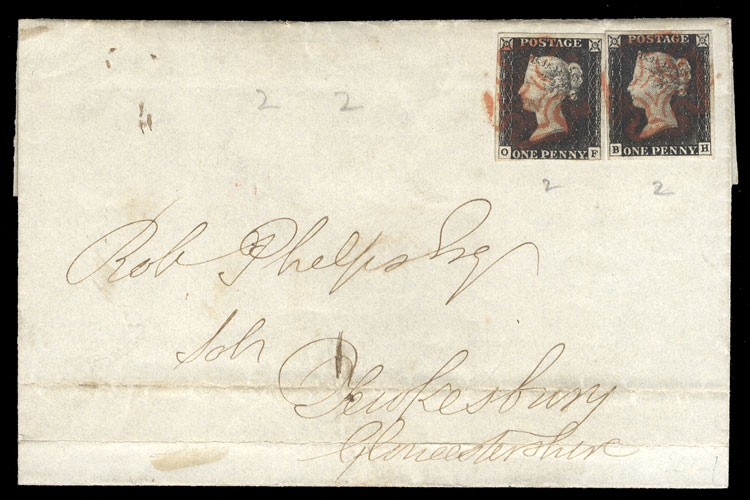 POSTAGE POSTAGE
2 2
O ONE PENNY F B ONE PENNY H
2 2
Rob Phelps Esq
Solr
Tewkesbury
Gloucestershire